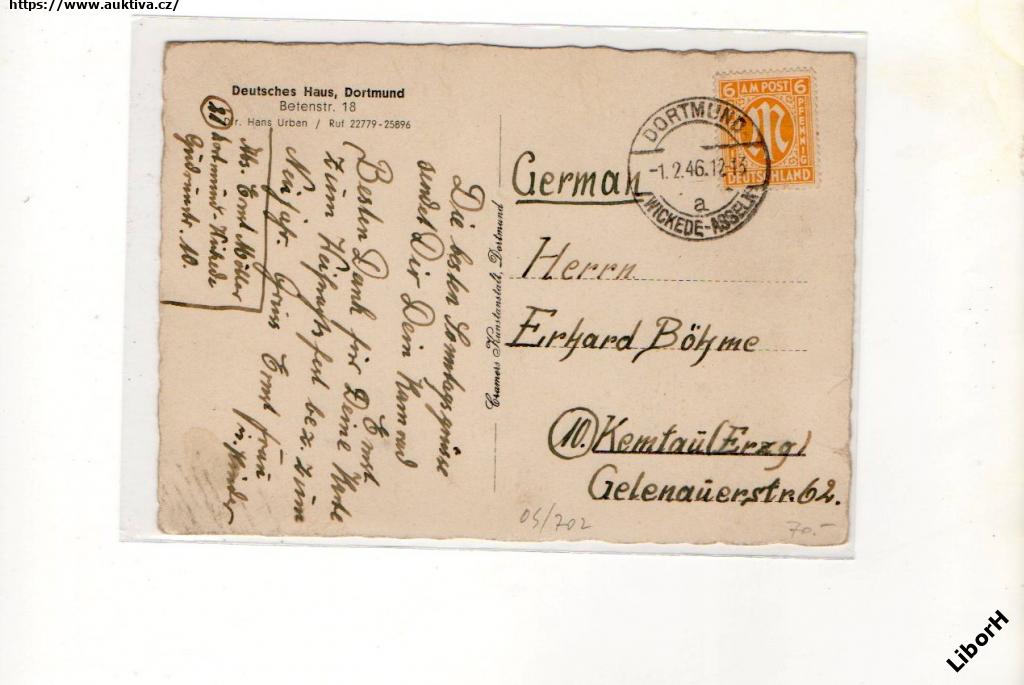 https://www.auktiva.cz/
Deutsches Haus, Dortmund
Betenstr. 18
Dir. Hans Urban / Ruf 22779-25896
Abs. Ernst Möller
21 Dortmund-Wickede
Gudrunstr. 10.
Die besten Sonntagsgrüsse
sendet Dir Dein Kamerad
Ernst
Besten Dank für Deine Karte
zum Weihnachtsfest bez. zum
Neujahr. Gruss Ernst Frau
u. Kinder
Cramers Kunstanstalt, Dortmund
6 AM POST 6
PFENNIG
M
DEUTSCHLAND
DORTMUND
-1.2.46.12-13
a
WICKEDE-ASSELN
German
Herrn
Erhard Böhme
10. Kemtau (Erzg)
Gelenauerstr. 62.
05/702
70.-
LiborH